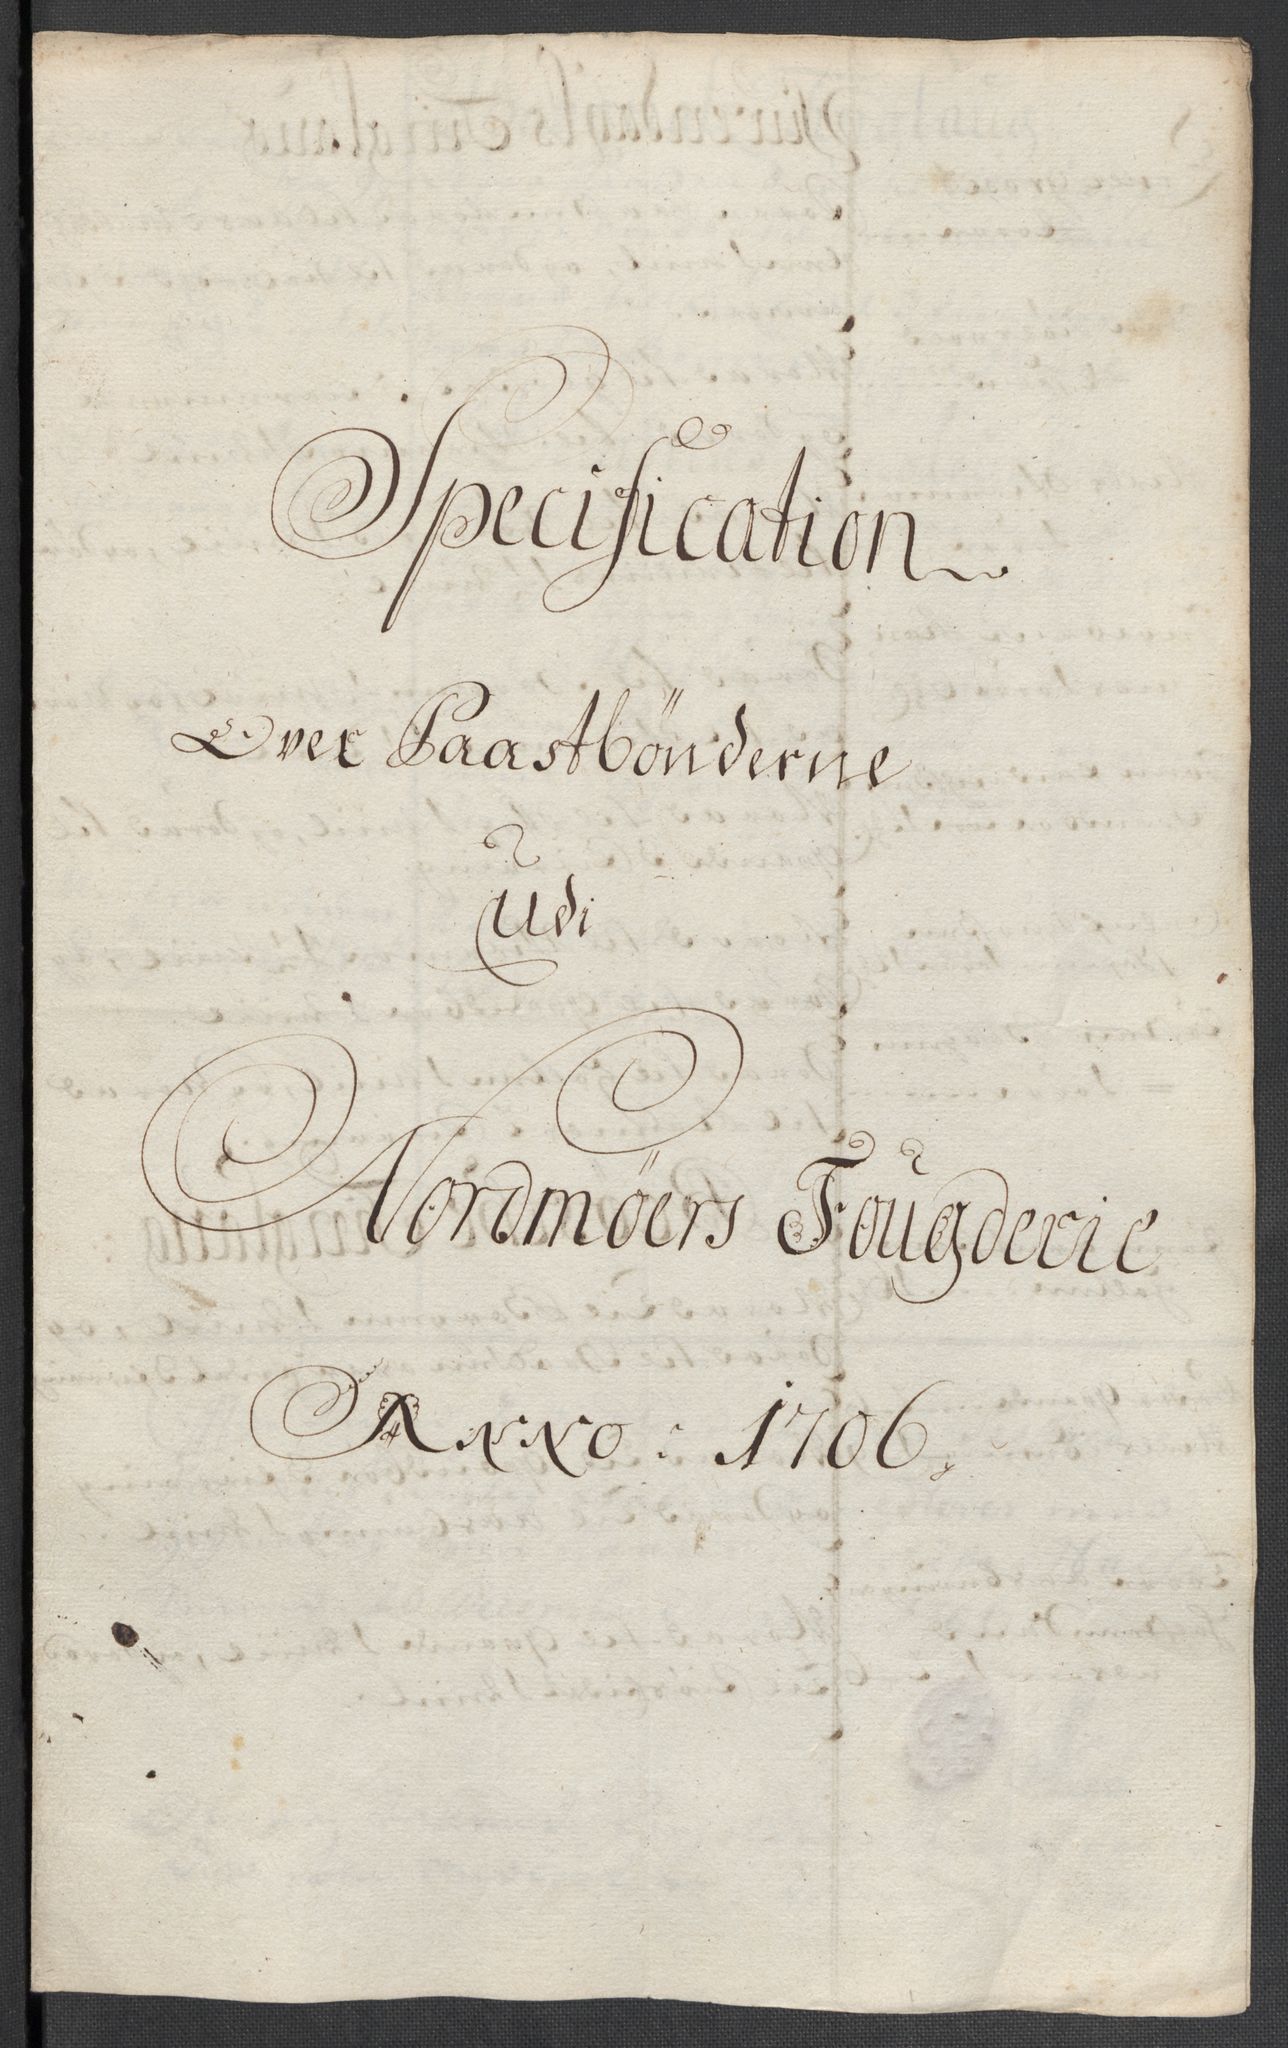 Specification
Over Paastbönderne
Udi
Nordmöers Foügderie
Anno: 1706.